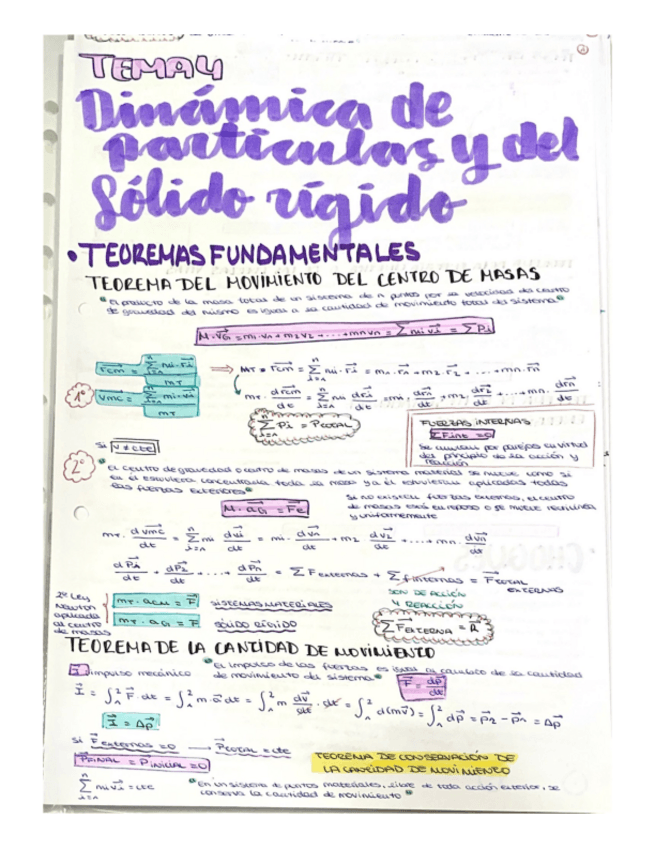 TEMA 4
Dinámica de
partículas y del
Sólido rígido
• TEOREMAS FUNDAMENTALES
TEOREMA DEL MOVIMIENTO DEL CENTRO DE MASAS
"El producto de la masa total de un sistema de n puntos por la velocidad del centro
de gravedad del mismo es igual a la cantidad de movimiento total del sistema"
M·v⃗G = m1·v1 + m2v2 + ....+ mnvn = Σ mi v⃗i = Σ Pi
r⃗cm = Σ mi·r⃗i / mT
⇒ MT · r⃗cm = Σ mi · r⃗i = m1 · r⃗1 + m2 · r⃗2 + .... + mn · r⃗n
1º
v⃗mc = Σ mi·vi / mT
mT · dr⃗cm/dt = Σ mi dr⃗i/dt = m1 · dr⃗1/dt + m2 · dr⃗2/dt + .... + mn · dr⃗n/dt
Σ P⃗i = P⃗TOTAL
FUERZAS INTERNAS
ΣFint = 0
Se anulan por parejas en virtud
del principio de la acción y
reacción
Si v ≠ cte
2º
"El centro de gravedad o centro de masas de un sistema material se mueve como si
en él estuviera concentrada toda la masa y a él estuvieran aplicadas todas
las fuerzas exteriores"
M · a⃗G = F⃗e
Si no existen fuerzas externas, el centro
de masas está en reposo o se mueve rectilínea
y uniformemente
mT · dv⃗mc/dt = Σ mi dv⃗i/dt = m1 · dv⃗1/dt + m2 dv⃗2/dt + .... + mn · dv⃗n/dt
dP⃗1/dt + dP⃗2/dt + .... + dP⃗n/dt = Σ F externas + Σ f internas = F⃗TOTAL EXTERNAS
SON DE ACCIÓN
Y REACCIÓN
2ª Ley
Newton
aplicada
al centro
de masas
mT · aCM = F⃗ SISTEMAS MATERIALES
mT · aG = F⃗ SÓLIDO RÍGIDO
Σ F⃗EXTERNA = R⃗
TEOREMA DE LA CANTIDAD DE MOVIMIENTO
I impulso mecánico
"El impulso de las fuerzas es igual al cambio de la cantidad
de movimiento del sistema"
F⃗ = dp⃗/dt
I⃗ = ∫₁² F⃗ · dt = ∫₁² m·a⃗ dt = ∫₁² m dv⃗/dt · dt = ∫₁² d(mv⃗) = ∫₁² dp⃗ = p⃗2 - p⃗1 = Δp⃗
I⃗ = Δp⃗
Si F⃗ externas = 0 → P⃗TOTAL = cte
P⃗FINAL = P⃗INICIAL = 0
TEOREMA DE CONSERVACIÓN DE
LA CANTIDAD DE MOVIMIENTO
Σ mi v⃗i = cte
"En un sistema de puntos materiales, libre de toda acción exterior, se
conserva la cantidad de movimiento"